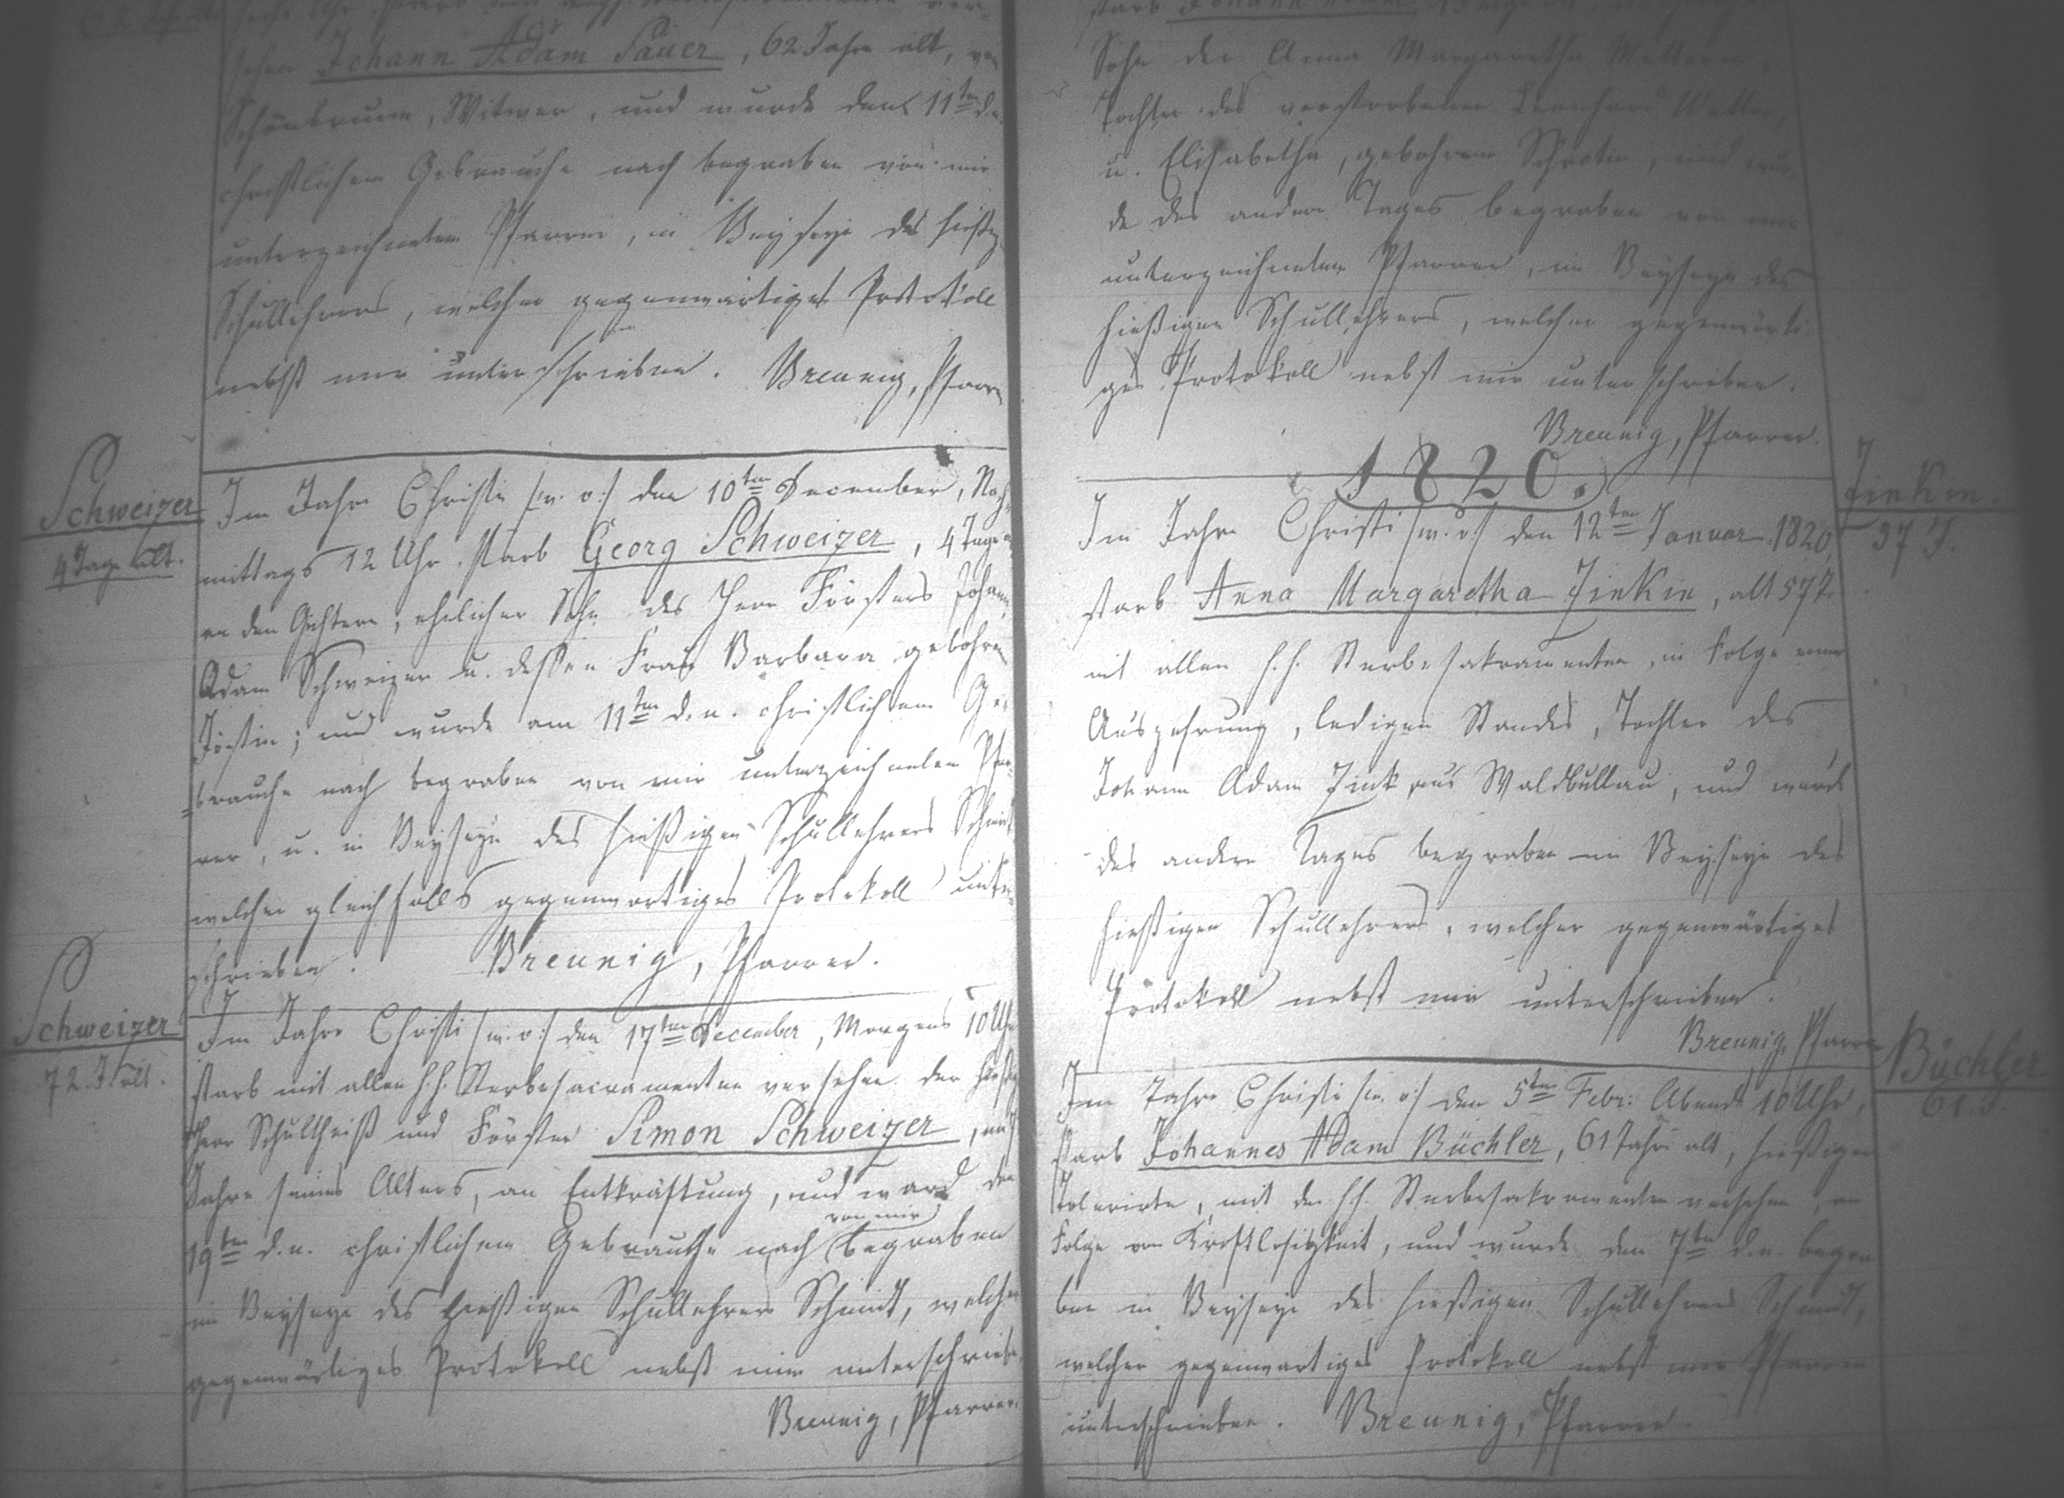 Johann Adam Sauer, 62 Jahre alt, von
Schönbrunn, Witwer, und wurde den 11ten d. n.
christlichem Gebrauche nach begraben von mir
unterzeichneten Pfarrer, in Beyseyn des hiesig.
Schullehrers, welcher gegenwärtiges Protokoll
nebst mir unterschrieben. Breunig, Pfarrer
Schweizer
4 Tage alt.
Im Jahre Christi /:w. o:/ den 10ten December, Nach-
mittags 12 Uhr starb Georg Schweizer, 4 Tage
an den Gichtern, ehelicher Sohn des Herr Försters Johann
Adam Schweizer u. dessen Frau Barbara gebohrne
; und wurde am 11ten d. n. christlichem Ge-
brauche nach begraben von mir unterzeichneten Pfar-
rer, u. in Beyseyn des hießigen Schullehrers Schmidt
welcher gleichfalls gegenwärtiges Protokoll unter-
schrieben. Breunig, Pfarrer.
Schweizer
72 J. alt.
Im Jahre Christi /:w. o:/ den 17ten December, Morgens 10 Uhr
starb mit allen h.h. Sterbesacramenten versehen der hießige
Herr Schultheiß und Förster Simon Schweizer, im
Jahre seines Alters, an Entkräftung, und ward den
19ten d. n. christlichem Gebrauche nach von mir begraben
im Beyseyn des hießigen Schullehrers Schmidt, welcher
gegenwärtiges Protokoll nebst mir unterschrieben
Breunig, Pfarrer.
Sohn der Anna Margaretha
Tochter des verstorbenen Leonhard
u. Elisabetha, gebohrne und wur-
de des andern Tages begraben von mir
unterzeichneten Pfarrer, im Beyseyn des
hießigen Schullehrers, welcher gegenwärti-
ges Protokoll nebst mir unterschrieben.
Breunig, Pfarrer.
1820.
Zinkin.
57 J.
Im Jahre Christi /:w. o:/ den 12ten Januar 1820
starb Anna Margaretha Zinkin, alt 57 J.
mit allen h.h. Sterbesakramenten, in Folge einer
Auszehrung, ledigen Standes, Tochter des
Johann Adam Zink aus Waldbullau, und wurde
des andern Tages begraben im Beyseyn des
hießigen Schullehrers, welcher gegenwärtiges
Protokoll nebst mir unterschrieben.
Breunig, Pfarrer
Büchler
61 J.
Im Jahre Christi /:w. o:/ den 5ten Febr. Abends 10 Uhr,
starb Johannes Adam Büchler, 61 Jahre alt, hießiger
Tolerirte, mit den h.h. Sterbesakramenten versehen, in
Folge von Kraftlosigkeit, und wurde den 7ten d. n. begra-
ben in Beyseyn des hießigen Schullehrers Schmidt,
welcher gegenwärtiges Protokoll nebst mir Pfarrer
unterschrieben. Breunig, Pfarrer.